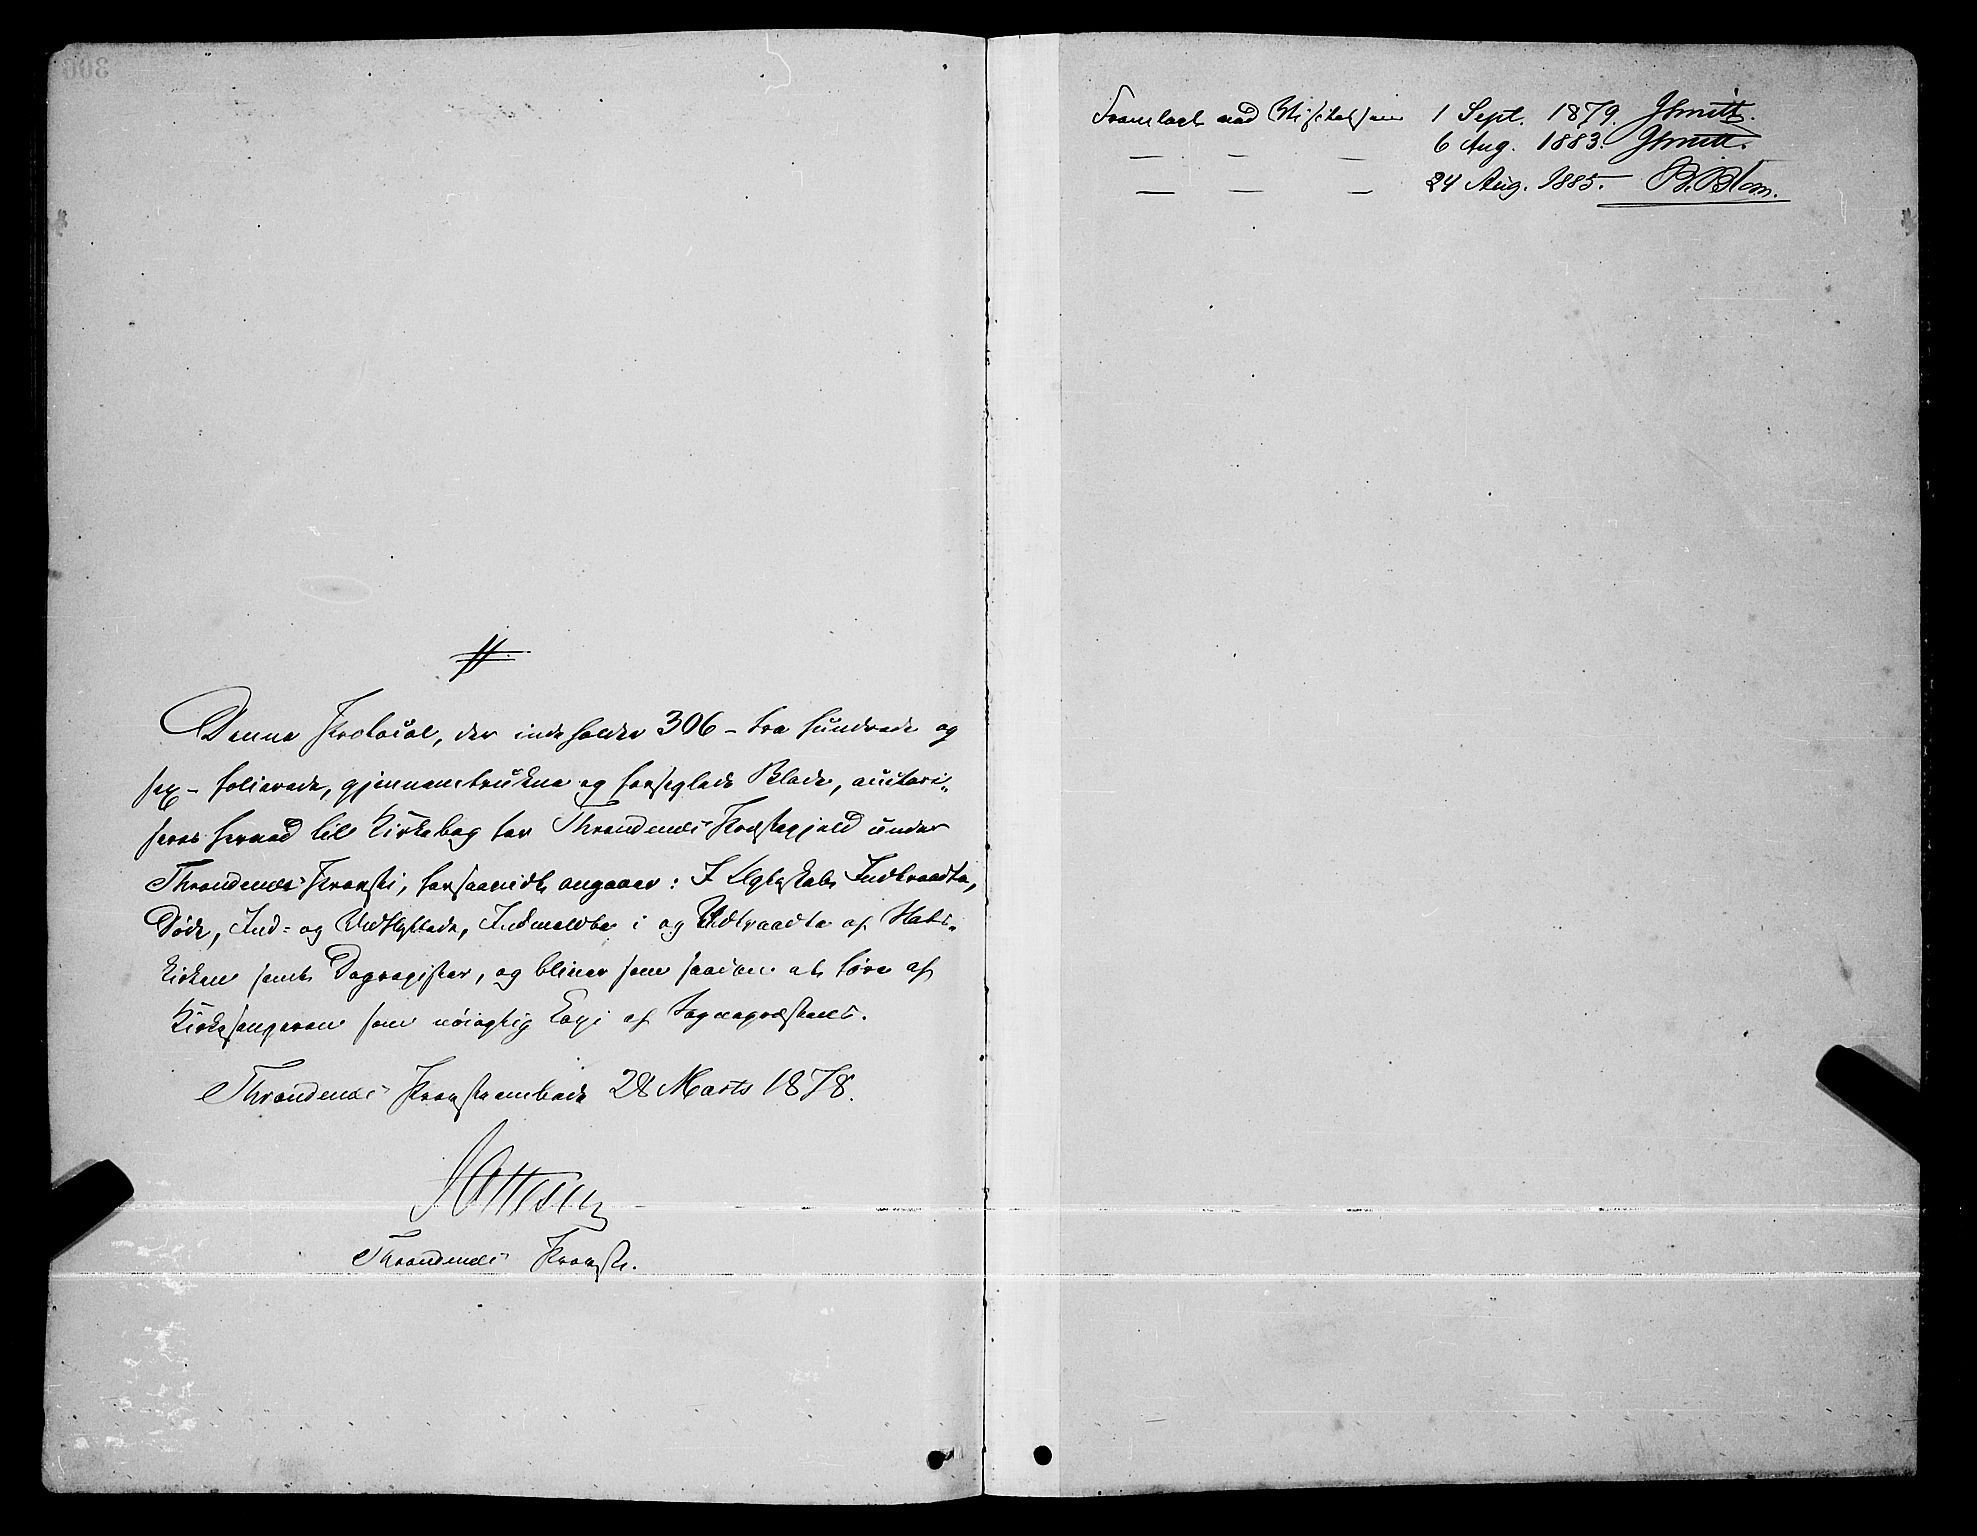 Denne Protocol, der indeholder 306 – tre hundrede og
sex – folierede, gjennemtrukne og forseglede Blade, autori„
seres herved til Kirkebog for Throndenæs Præstegjeld under
Throndenæs Provsti, forsaavidt angaaer: I Ægteskab Indtraadte,
Døde, Ind- og Udflyttede, Indmeldte i og Udtraadte af Stats„
kirken samt Dagregister, og bliver som saadan at føre af
Kirkesangeren som nøiagtig Copi af Sognepræstens.
Throndenæs Provsteembede 28 Marts 1878.
Throndenæs Provsti.
Fremlagt ved Visitatsen 1 Sept. 1879. JSmitt.
— — — 6 Aug. 1883. JSmitt.
— — — 24 Aug. 1885. – B. Blom.
306